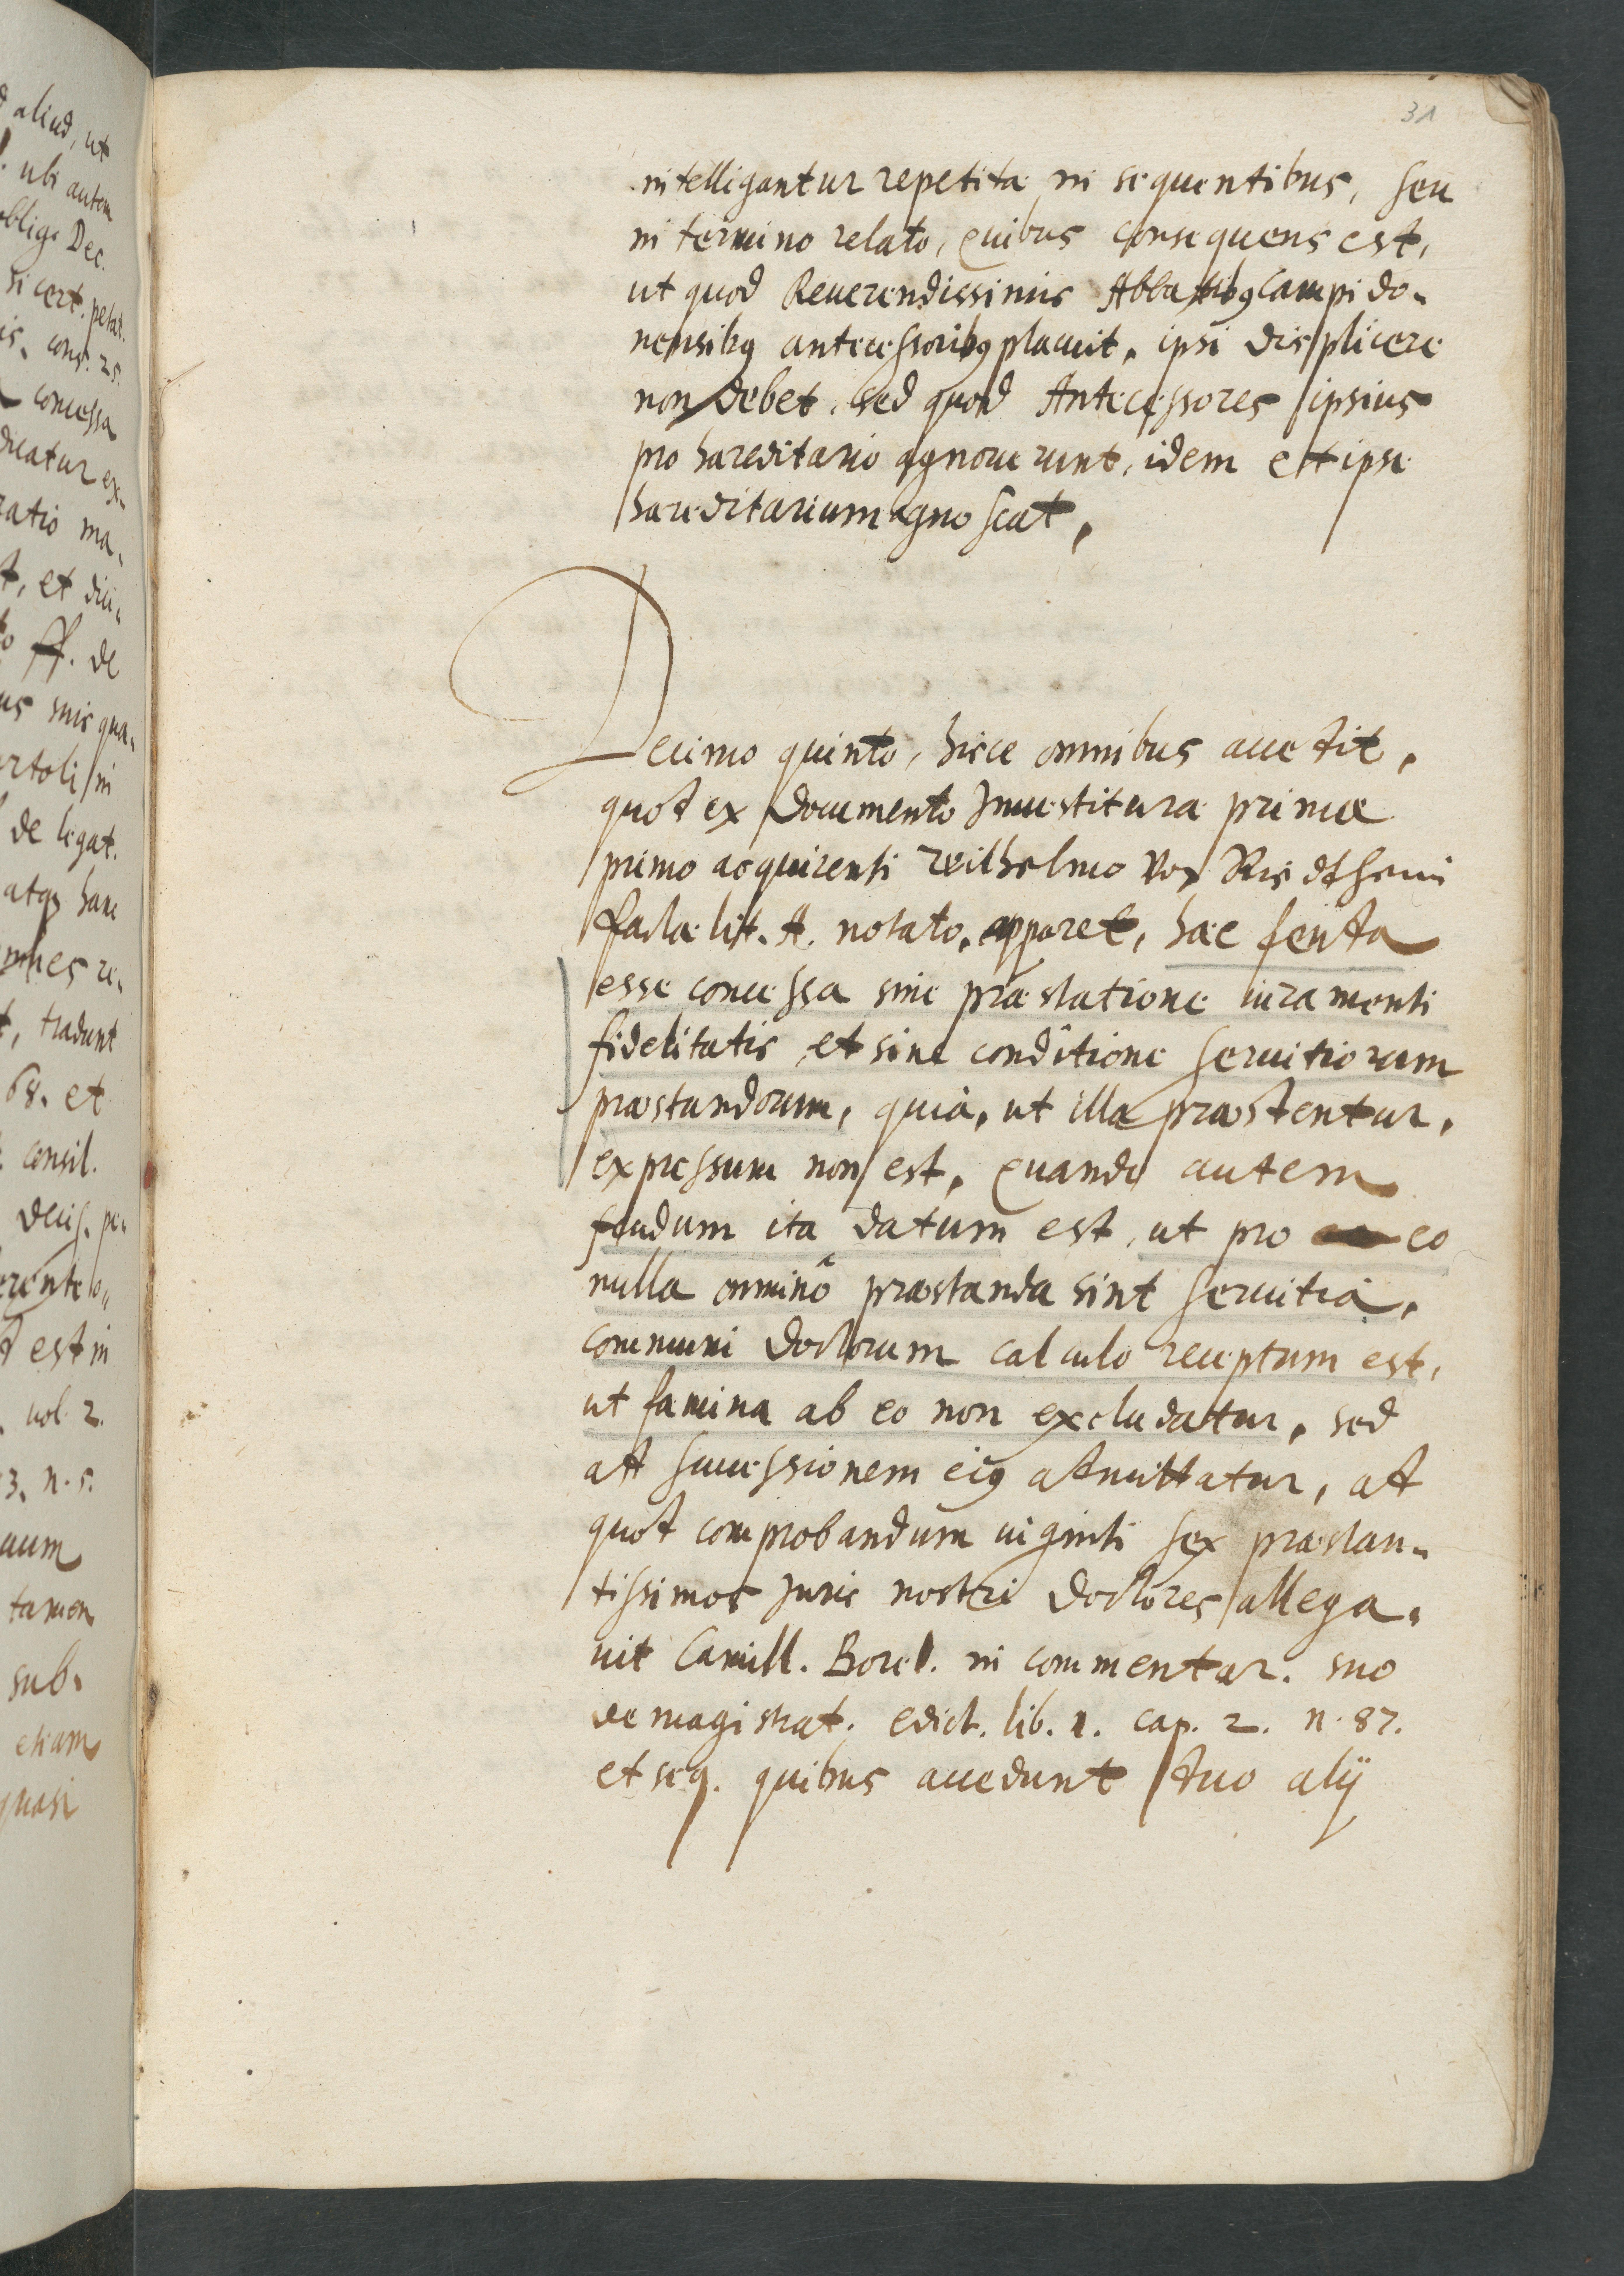 31
intelligantur repetita in sequentibus, seu
in termino relato, quibus consequens est,
ut quod Reuerendissimis Abbatibꝰ Campido-
nensibꝰ antecessoribꝰ placuit, ipsi displicere
non debet, sed quod Antecessores ipsius
pro hæreditario agnouerunt, idem et ipse
hæreditarium agnoscat,
Decimo quinto, hisce omnibus accedit,
quod ex documento Inuestituræ primæ
primo acquirenti Wilhelmo von Riedtheim
factæ lit. A. notato, apparet, hæc feuda
esse concessa sine præstatione iuramenti
fidelitatis et sine conditione seruitiorum
præstandorum, quia, ut illa præstentur,
expressum non est, quando autem
feudum ita datum est, ut pro eo
nulla omninò præstanda sint seruitia,
communi doctorum calculo receptum est,
ut fæmina ab eo non excludatur, sed
ad successionem eiꝰ admittatur, ad
quod comprobandum uiginti sex præstan-
tissimos Juris nostri doctores allega-
uit Camill. Borel. in commentar. suo
de magistrat. edict. lib. 1. cap. 2. n. 87.
et seq. quibus accedunt duo alij
aliud, ut
ubi autem
oblig. Dec.
si cert. petat.
cons. 25.
concessa
dicatur ex-
ratio ma-
et dici-
ff. de
us suis qua-
artoli in
de legat.
atqꝫ hanc
omnes re-
tradunt
68. et
consil.
decis. pe-
est in
uol. 2.
3. n. 5.
tamen
sub-
etiam
quasi